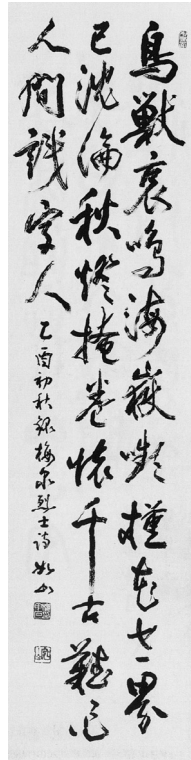 鳥獸哀鳴海嶽嚬槿花世界
已沈淪秋燈掩卷懷千古難作
人間識字人 乙酉初秋錄梅泉烈士詩